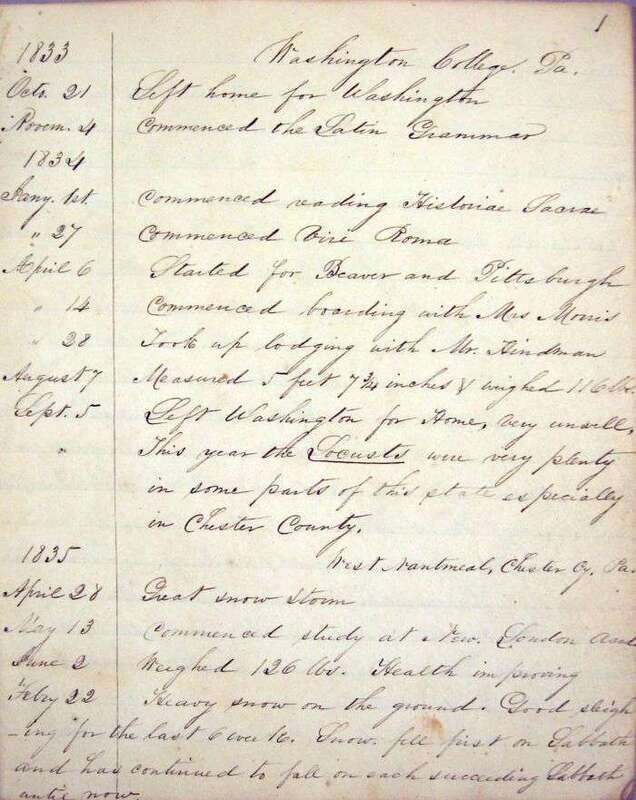 1
1833 Washington College. Pa.
Octr. 21 Left home for Washington
Novem. 4 Commenced the Latin Grammar
1834
Jany. 1st. Commenced reading Historiae Sacrae
" 27 Commenced Viri Roma
April 6 Started for Beaver and Pittsburgh
" 14 Commenced boarding with Mrs Morris
" 28 Took up lodging with Mr. Hindman
August 7 Measured 5 feet 7 3/4 inches & weighed 116 lbs.
Sept. 5 Left Washington for Home, very unwell,
" This year the Locusts were very plenty
in some parts of this state especially
in Chester County.
1835 West Nantmeal, Chester Cy, Pa.
April 28 Great snow storm
May 13 Commenced study at New. London
June 2 Weighed 126 lbs. Health improving
Feby 22 Heavy snow on the ground. Good sleigh
-ing for the last 6 weeks. Snow. fell first on Sabbath
and has continued to fall on each succeeding Sabbath
until now.